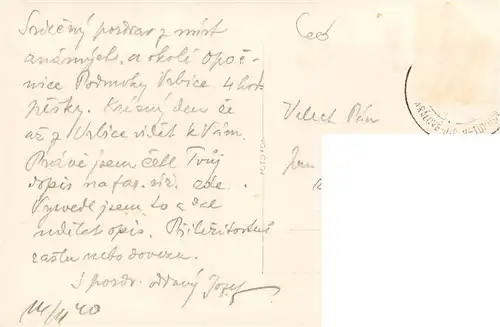 Srdečný pozdrav z míst
známých, a okolí Opoč-
nice Podmoky Vrbice 4 hod.
pěšky. Krásný den že
až z Vrbice vidět k Vám.
Právě jsem četl Tvůj
dopis na far. zde.
Vyvedl jsem to a dal
udělat opis. Příležitostně
zašlu nebo dovezu.
S pozdr. oddaný Josef
14/II 40
Velect Pán
FOTOFON